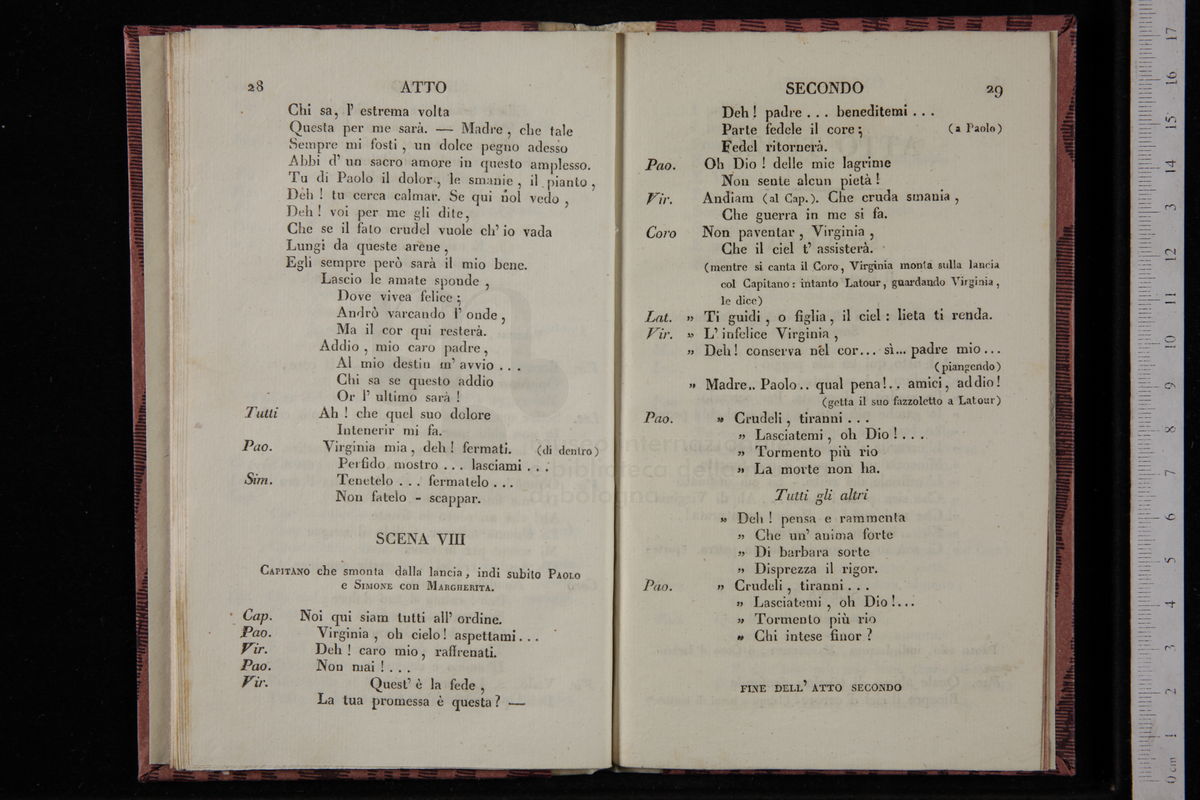 28 ATTO
Chi sa, l' estrema volta
Questa per me sarà. — Madre, che tale
Sempre mi fosti, un dolce pegno adesso
Abbi d' un sacro amore in questo amplesso.
Tu di Paolo il dolor, le smanie, il pianto,
Deh! tu cerca calmar. Se qui nol vedo,
Deh! voi per me gli dite,
Che se il fato crudel vuole ch' io vada
Lungi da queste arene,
Egli sempre però sarà il mio bene.
Lascio le amate sponde,
Dove vivea felice;
Andrò varcando l' onde,
Ma il cor qui resterà.
Addio, mio caro padre,
Al mio destin m' avvio . . .
Chi sa se questo addio
Or l' ultimo sarà!
Tutti Ah! che quel suo dolore
Intenerir mi fa.
Pao. Virginia mia, deh! fermati. (di dentro)
Perfido mostro . . . lasciami . . .
Sim. Tenetelo . . . fermatelo . . .
Non fatelo - scappar.
SCENA VIII
CAPITANO che smonta dalla lancia, indi subito PAOLO
e SIMONE con MARGHERITA.
Cap. Noi qui siam tutti all' ordine.
Pao. Virginia, oh cielo! aspettami. . .
Vir. Deh! caro mio, raffrenati.
Pao. Non mai! . . .
Vir. Quest' è la fede,
La tua promessa è questa? —
SECONDO 29
Deh! padre . . . beneditemi . . .
Parte fedele il core; (a Paolo)
Fedel ritornerà.
Pao. Oh Dio! delle mie lagrime
Non sente alcun pietà!
Vir. Andiam (al Cap.). Che cruda smania,
Che guerra in me si fa.
Coro Non paventar, Virginia,
Che il ciel t' assisterà.
(mentre si canta il Coro, Virginia monta sulla lancia
col Capitano: intanto Latour, guardando Virginia,
le dice)
Lat. » Ti guidi, o figlia, il ciel: lieta ti renda.
Vir. » L' infelice Virginia,
» Deh! conserva nel cor... sì... padre mio...
(piangendo)
» Madre.. Paolo.. qual pena!.. amici, addio!
(getta il suo fazzoletto a Latour)
Pao. » Crudeli, tiranni . . .
» Lasciatemi, oh Dio! . . .
» Tormento più rio
» La morte non ha.
Tutti gli altri
» Deh! pensa e rammenta
» Che un' anima forte
» Di barbara sorte
» Disprezza il rigor.
Pao. » Crudeli, tiranni . . .
» Lasciatemi, oh Dio!...
» Tormento più rio
» Chi intese finor?
FINE DELL' ATTO SECONDO